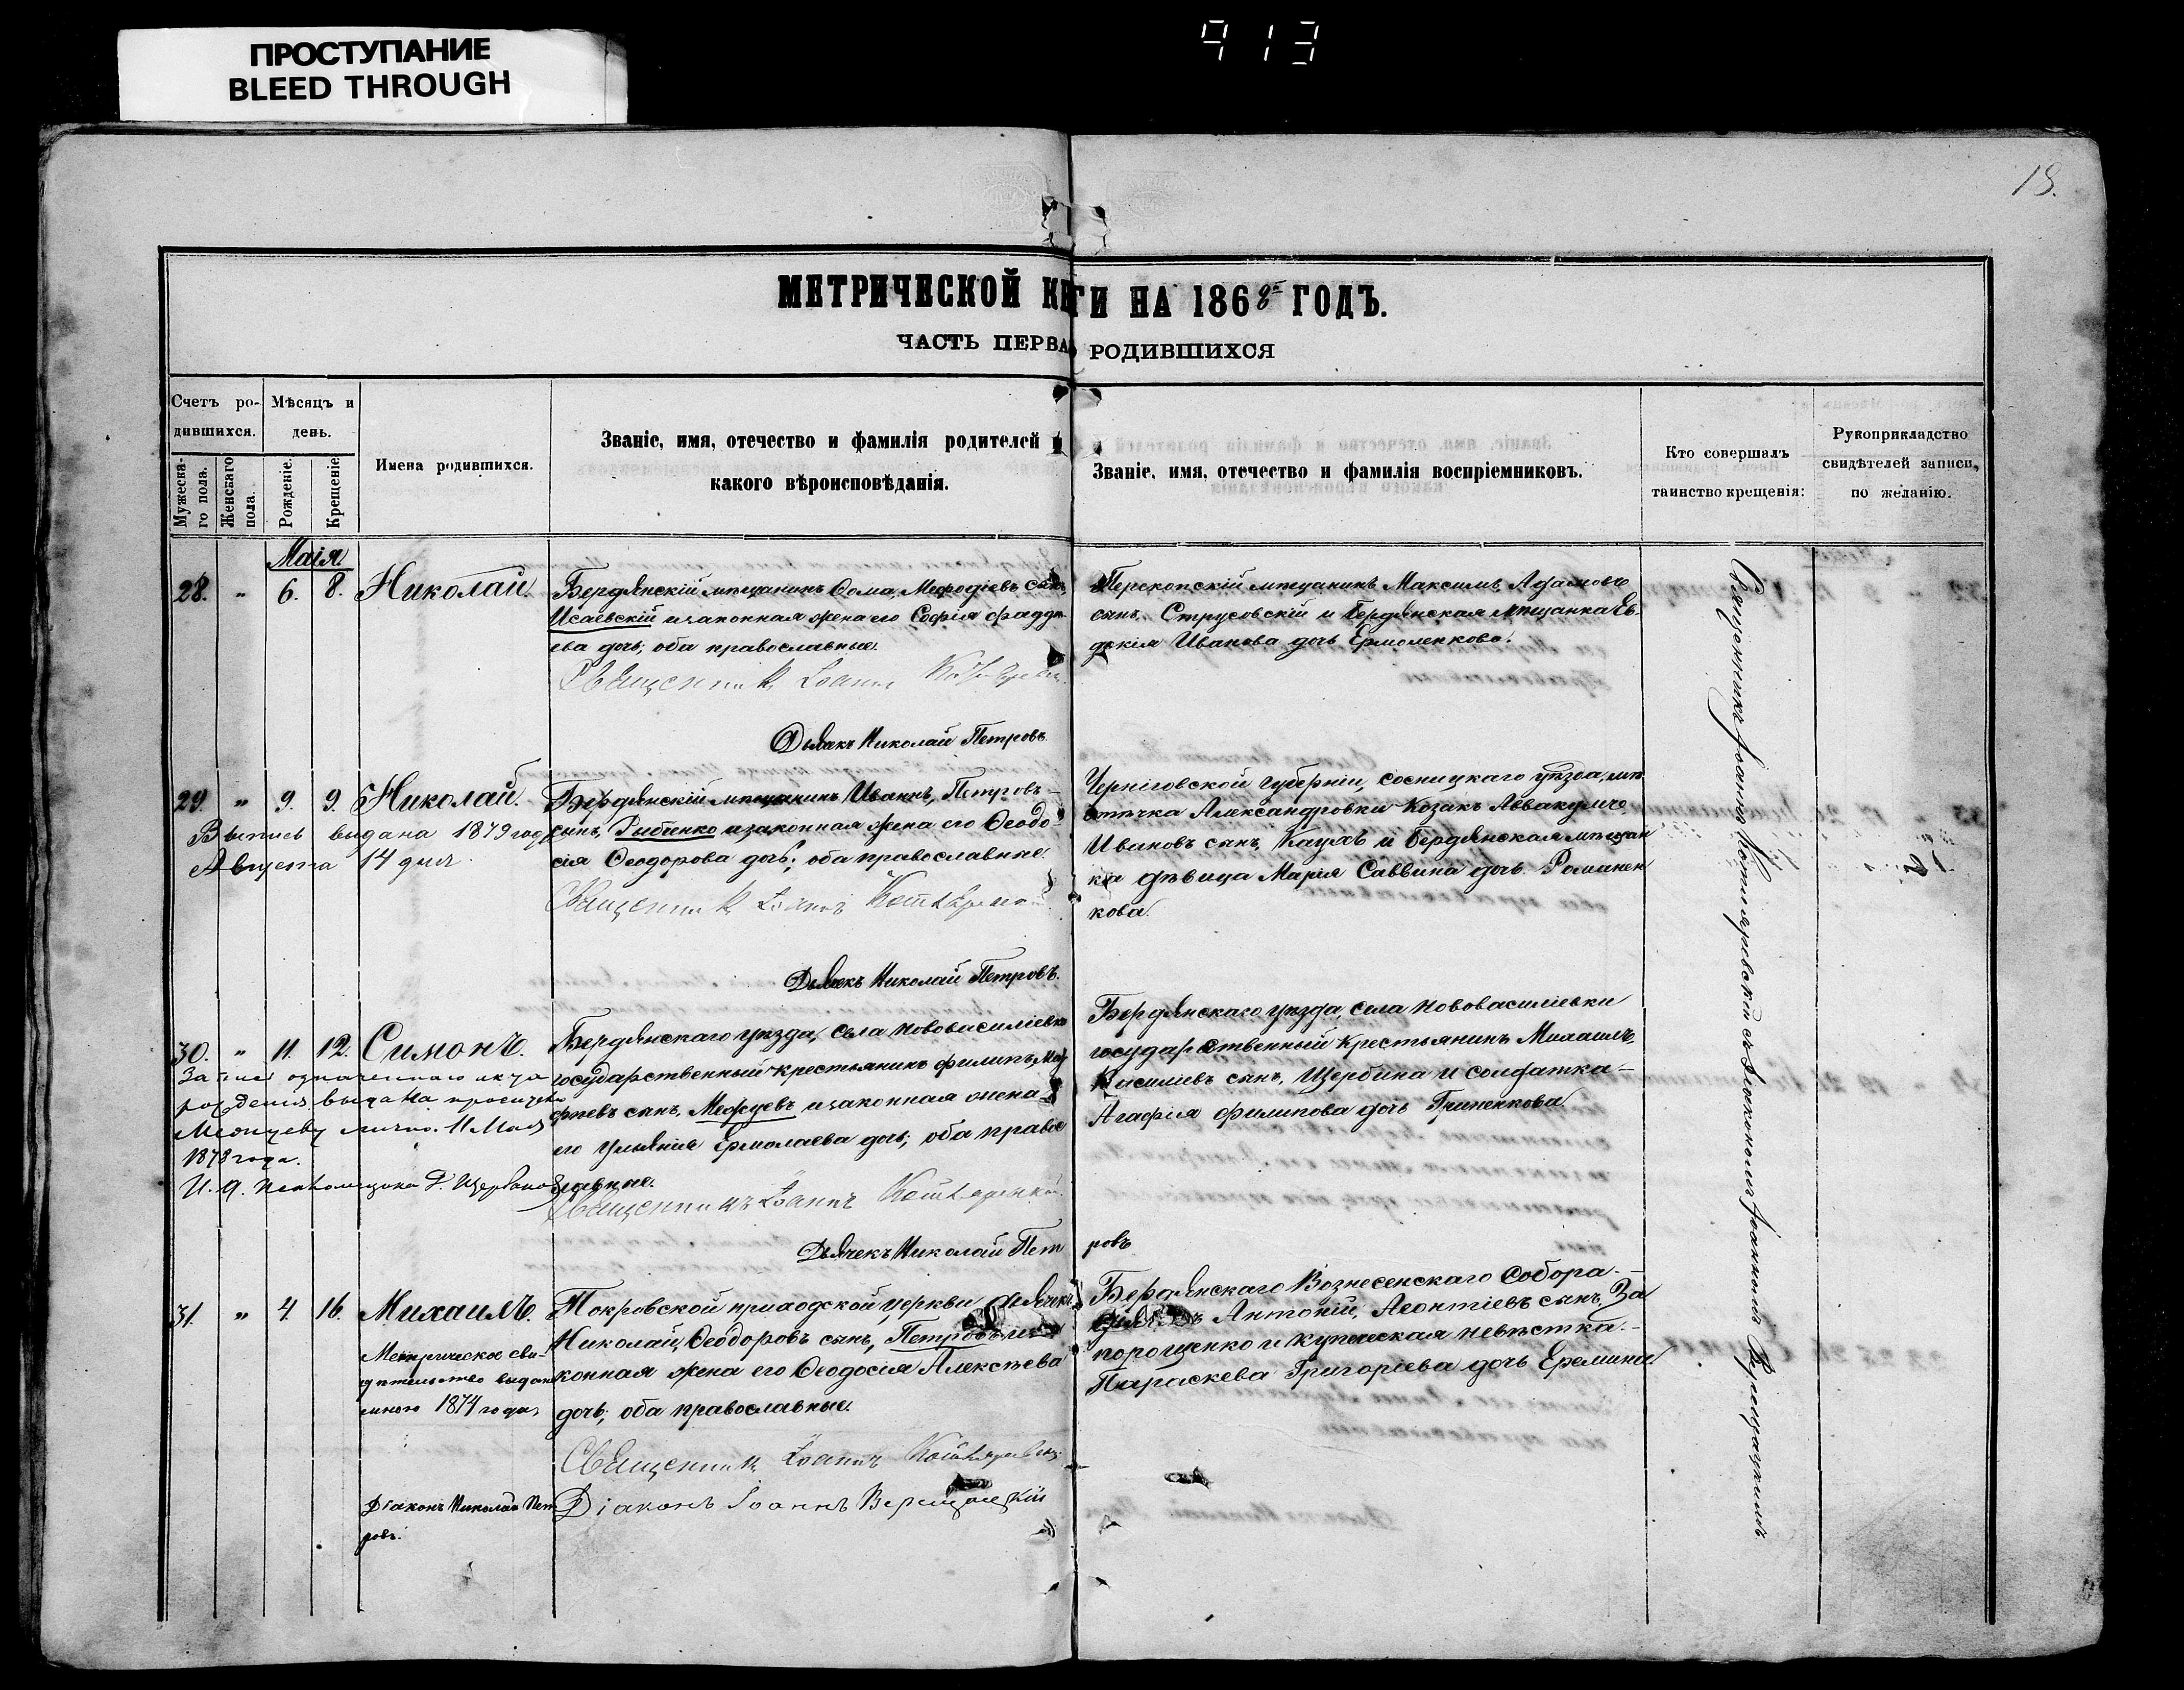 ПРОСТУПАНИЕ
BLEED THROUGH
913
18.
МЕТРИЧЕСКОЙ КНИГИ НА 1868й ГОДЪ.
ЧАСТЬ ПЕРВАЯ РОДИВШИХСЯ
Счетъ ро-
дившихся.
Мужеска-
го пола.
Женскаго
пола.
Мѣсяцъ и
день.
Рожденіе.
Крещеніе.
Имена родившихся.
Званіе, имя, отечество и фамилія родителей и
какого вѣроисповѣданія.
Званіе, имя, отечество и фамилія воспріемниковъ.
Кто совершалъ
таинство крещенія:
Рукоприкладство
свидѣтелей записи,
по желанію.
Маія
28. " 6. 8. Николай.
Бердянскій мѣщанинъ Ѳома, Меѳодіевъ сынъ,
Исаевскій изаконная жена его Софія Фадде-
ева дочь; оба православные.
Священникъ Іоаннъ
Дьячекъ Николай Петровъ.
Перекопскій мѣщанинъ Максимъ, Адамовъ
сынъ, Струсовскій и Бердянская мѣщанка Ев-
докія Иванова дочь Ермоленкова.
29. " 9. 9. Николай.
Выпись выдана 1879 года
Августа 14 дня.
Бердянскій мѣщанинъ Иванъ, Петровъ
сынъ, Рыбенко изаконная жена его Ѳеодо-
сія Ѳеодорова дочь; оба православные.
Священникъ Іоаннъ
Дьячекъ Николай Петровъ.
Черниговской губерніи, Сосницкаго уѣзда, мѣ-
стечка Александровки Козакъ Аввакумъ
Ивановъ сынъ, Кауль и Бердянская мѣщан
ка дѣвица Марія Саввина дочь Романен
кова.
30. " 11. 12. Симонъ.
выдана
лично. 11 Мая
1878 года.
Бердянскаго уѣзда, села Нововасиліевки
государственный крестьянинъ Филипъ,
сынъ, Межуевъ изаконная жена
его Ульянія Ермолаева дочь; оба право
славные.
Священникъ Іоаннъ
Дьячекъ Николай Петровъ
Бердянскаго уѣзда, села Нововасиліевки
государственный крестьянинъ Михаилъ,
Василіевъ сынъ, Щербина и солдатка
Агафія Филипова дочь Гриненкова.
31. " 4. 16. Михаилъ.
Метрическое сви-
дѣтельство выдано
мною 1874 года
Діаконъ Николай Пет
ровъ.
Покровской приходской церкви дьячекъ
Николай, Ѳеодоровъ сынъ, Петровъ иза
конная жена его Ѳеодосія Алексѣева
дочь; оба православные.
Священникъ Іоаннъ Котляревскій
Діаконъ Іоаннъ Верещацкій
Бердянскаго Вознесенскаго Собора
Антоній, Леонтіевъ сынъ, За
порощенко и купеческая невѣстка
Параскева Григоріева дочь Еремина
Священникъ Іоаннъ Котляревскій съ діакономъ Іоанномъ Верещацкимъ